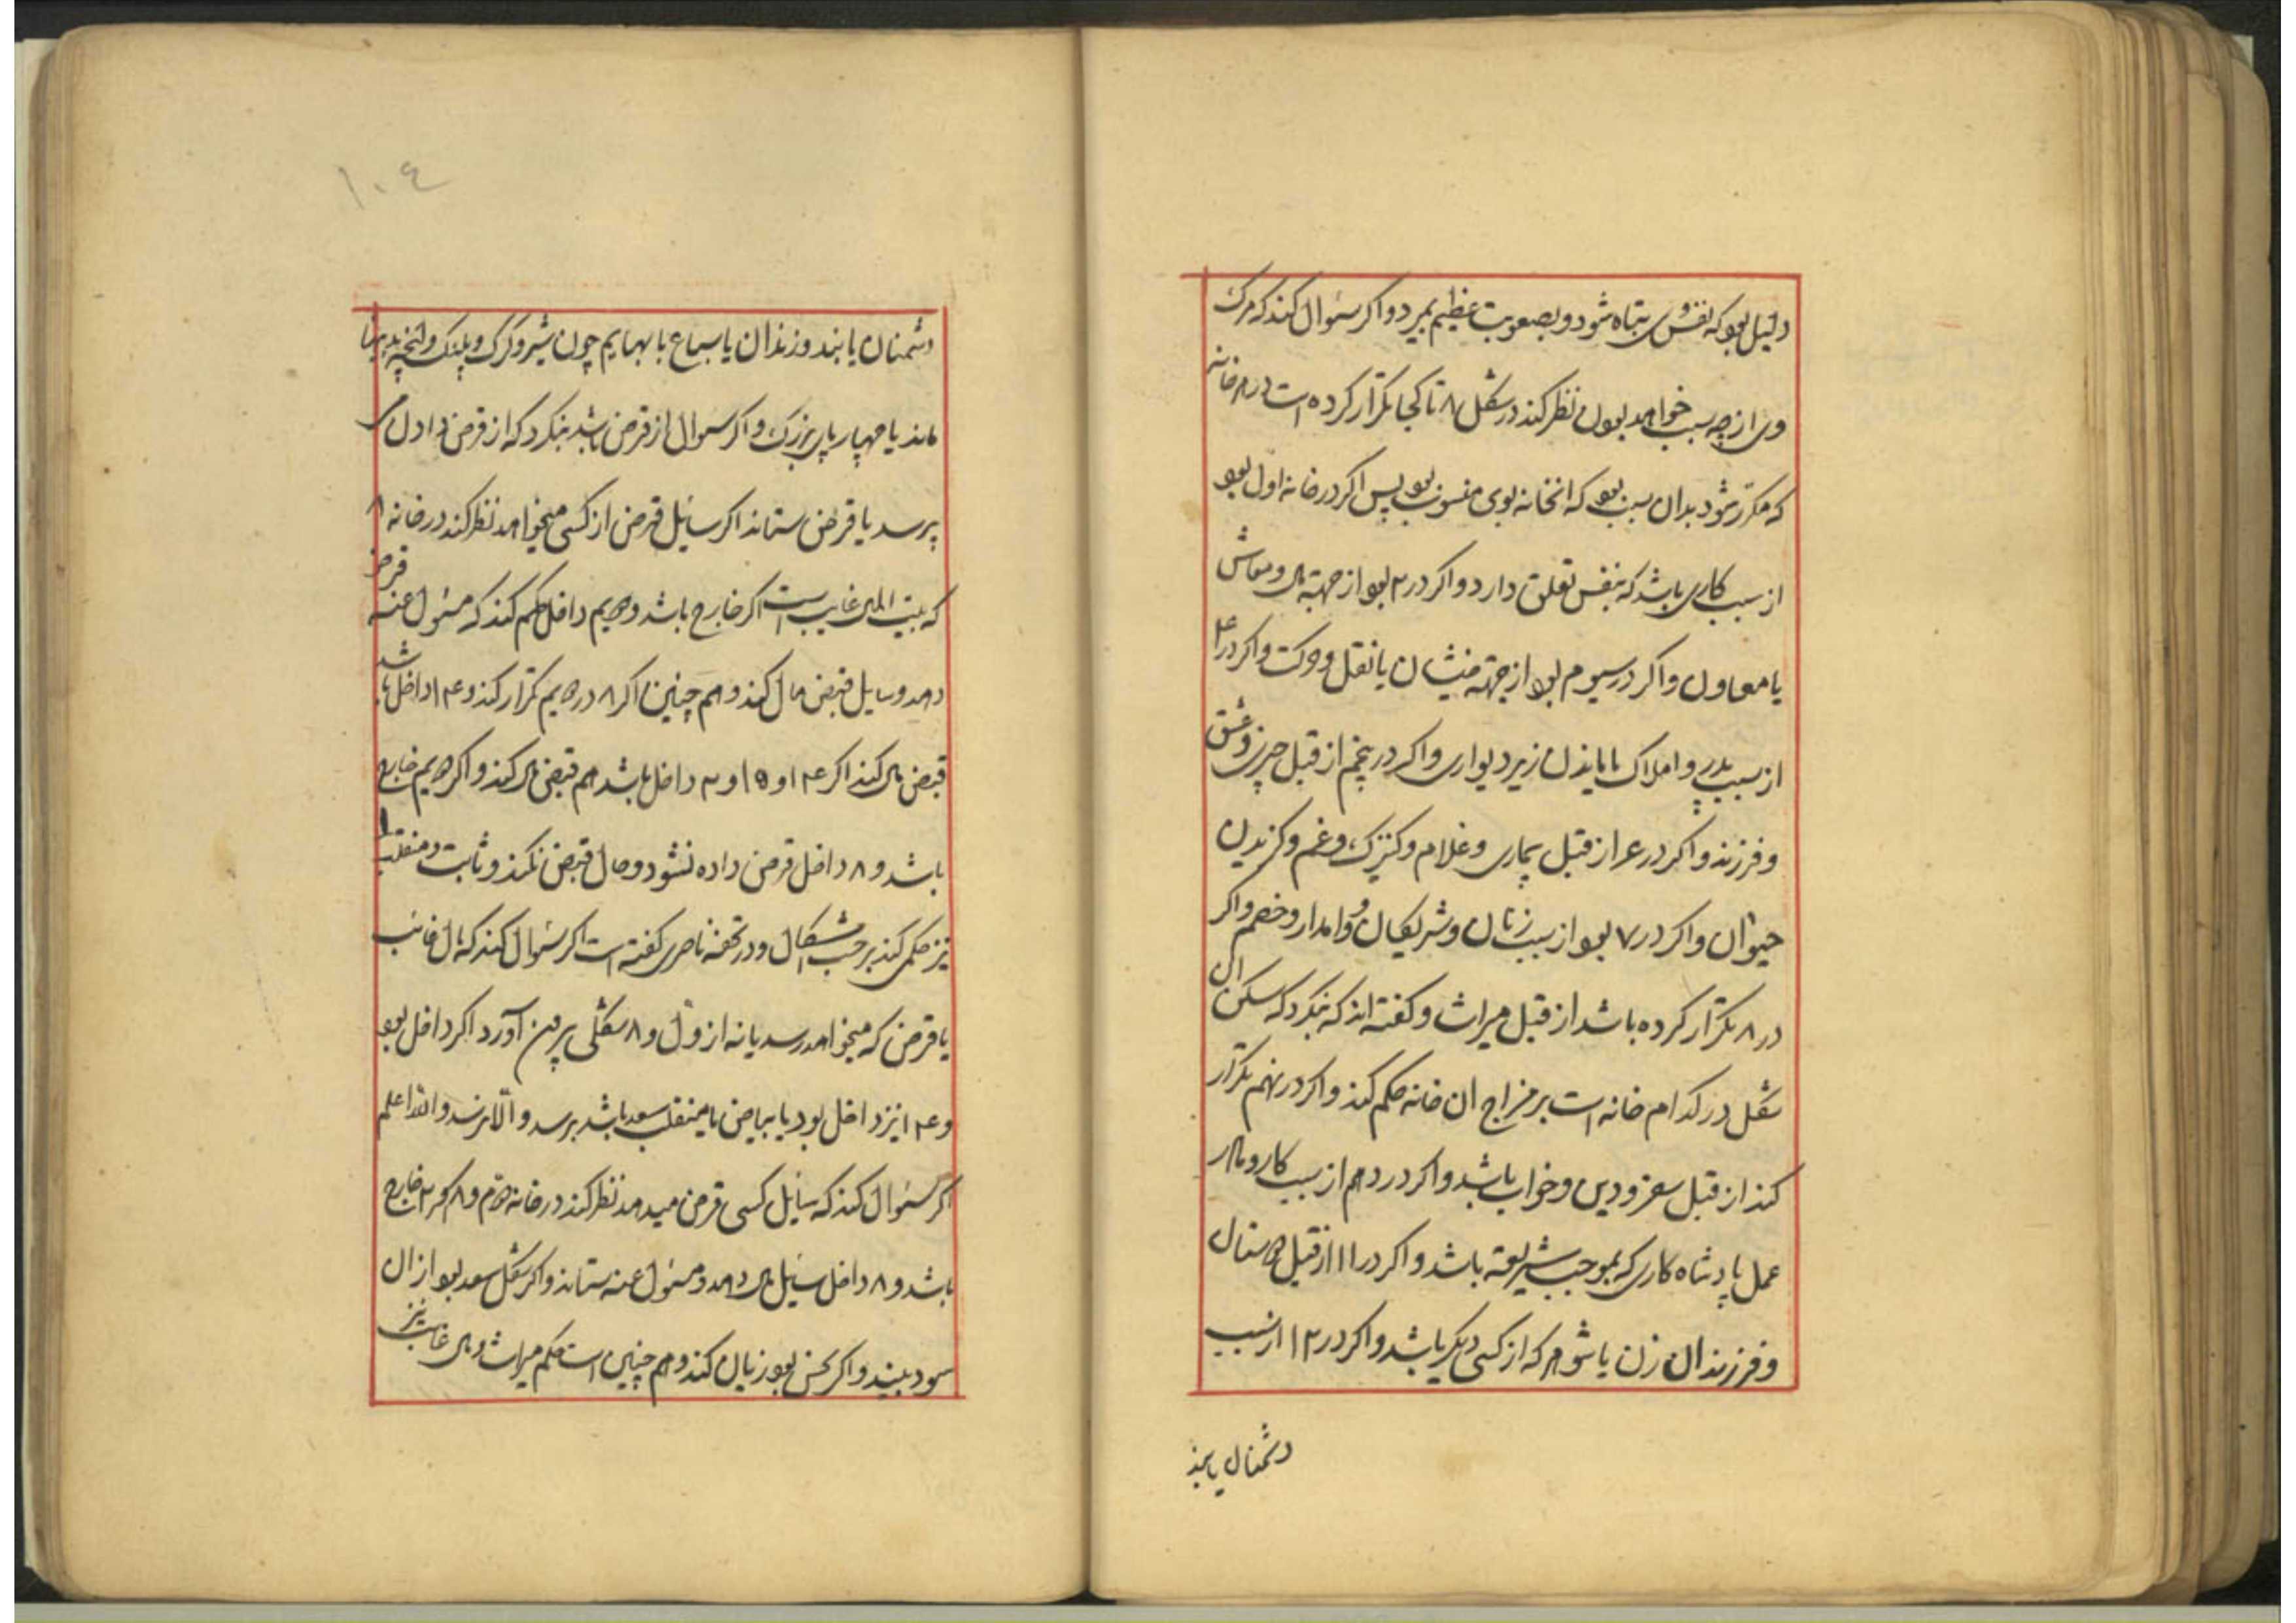 دلیل بود که نفوس تباه شود و بصعوبت عظیم بمیرد و اکر سئوال کند که مرک
وی از چه سبب خواهد بودن نظر کند در شکل ۸ تا کجا تکرار کرده است در هر خانه
که مکرر شود بدان سبب بود که انخانه بوی منسوب بود پس اکر در خانه اول بود
از سبب کاری باشد که بنفس تعلق دارد و اکر در ۲ بود از جهة مال و معاش
یا معاون و اکر در سیوم بود از جهة خویشان یا نقل و حرکت و اکر در ۴
از سبب پدر و املاک یا ماندن زیر دیواری و اکر در پنجم از قبل خبر و عشق
و فرزند و اکر در ۶ از قبل بیماری و غلام و کنیزک و غم و کزیدن
حیوان و اکر در ۷ بود از سبب زنان و شریکان و وامدار و خصم و اکر
در ۸ تکرار کرده باشد از قبل میراث و کفته اند که بنکرد که سکن ان
شکل در کدام خانه است بر مزاج ان خانه حکم کند و اکر در نهم تکرار
کند از قبل سفر و دین و خواب باشد و اکر در دهم از سبب کار و
عمل پادشاه کاری که بموجب شریعة باشد و اکر در ۱۱ از قبل دوستان
و فرزندان زن یا شوهر که از کسی دیکر باشد و اکر در ۱۲ از سبب
دشمنان یا بند
۱۰٤
دشمنان یا بند و زندان یا سباع یا بهایم چون شیر و کرک و پلنک و انچه بدینها
ماند یا چهارپای بزرک و اکر سوال از قرض باشد بنکرد که از قرض دادن می
پرسد یا قرض ستاند اکر سائل قرض از کسی میخواهد نظر کند در خانه ۸
که بیت المال غایب است اکر خارج باشد و دویم داخل حکم کند که مسئول عنه قرض
دهد و سایل قبض مال کند و هم چنین اکر ۸ در دویم تکرار کند و ۱۴ داخل باشد
قبض مال کند اکر ۱۴ و ۱۵ و ۲ داخل باشد هم قبض مال کند و اکر دویم خارج
باشد و ۸ داخل قرض داده نشود و مال قبض نکند و ثابت و منقلب را
نیز حکم کند بر حسب اشکال و در تحفه ناصری کفته است اکر سئوال کند که مال غائب
یا قرض که میخواهد رسد یا نه از اول و ۸ شکلی بیرون آورد اکر داخل بود
و ۱۴ نیز داخل بود یا بیاض یا منقلب سعد باشد برسد و الا نرسد والله اعلم
اکر سئوال کند که سایل کسی قرض میدهد نظر کند در خانه دوم و ۸ اکر ۲ خارج
باشد و ۸ داخل سایل مال دهد و مسئول عنه ستاند و اکر شکل سعد بود از ان
سود بیند و اکر نحس بود زیان کند و هم چنین است حکم میراث و مال غایب نیز